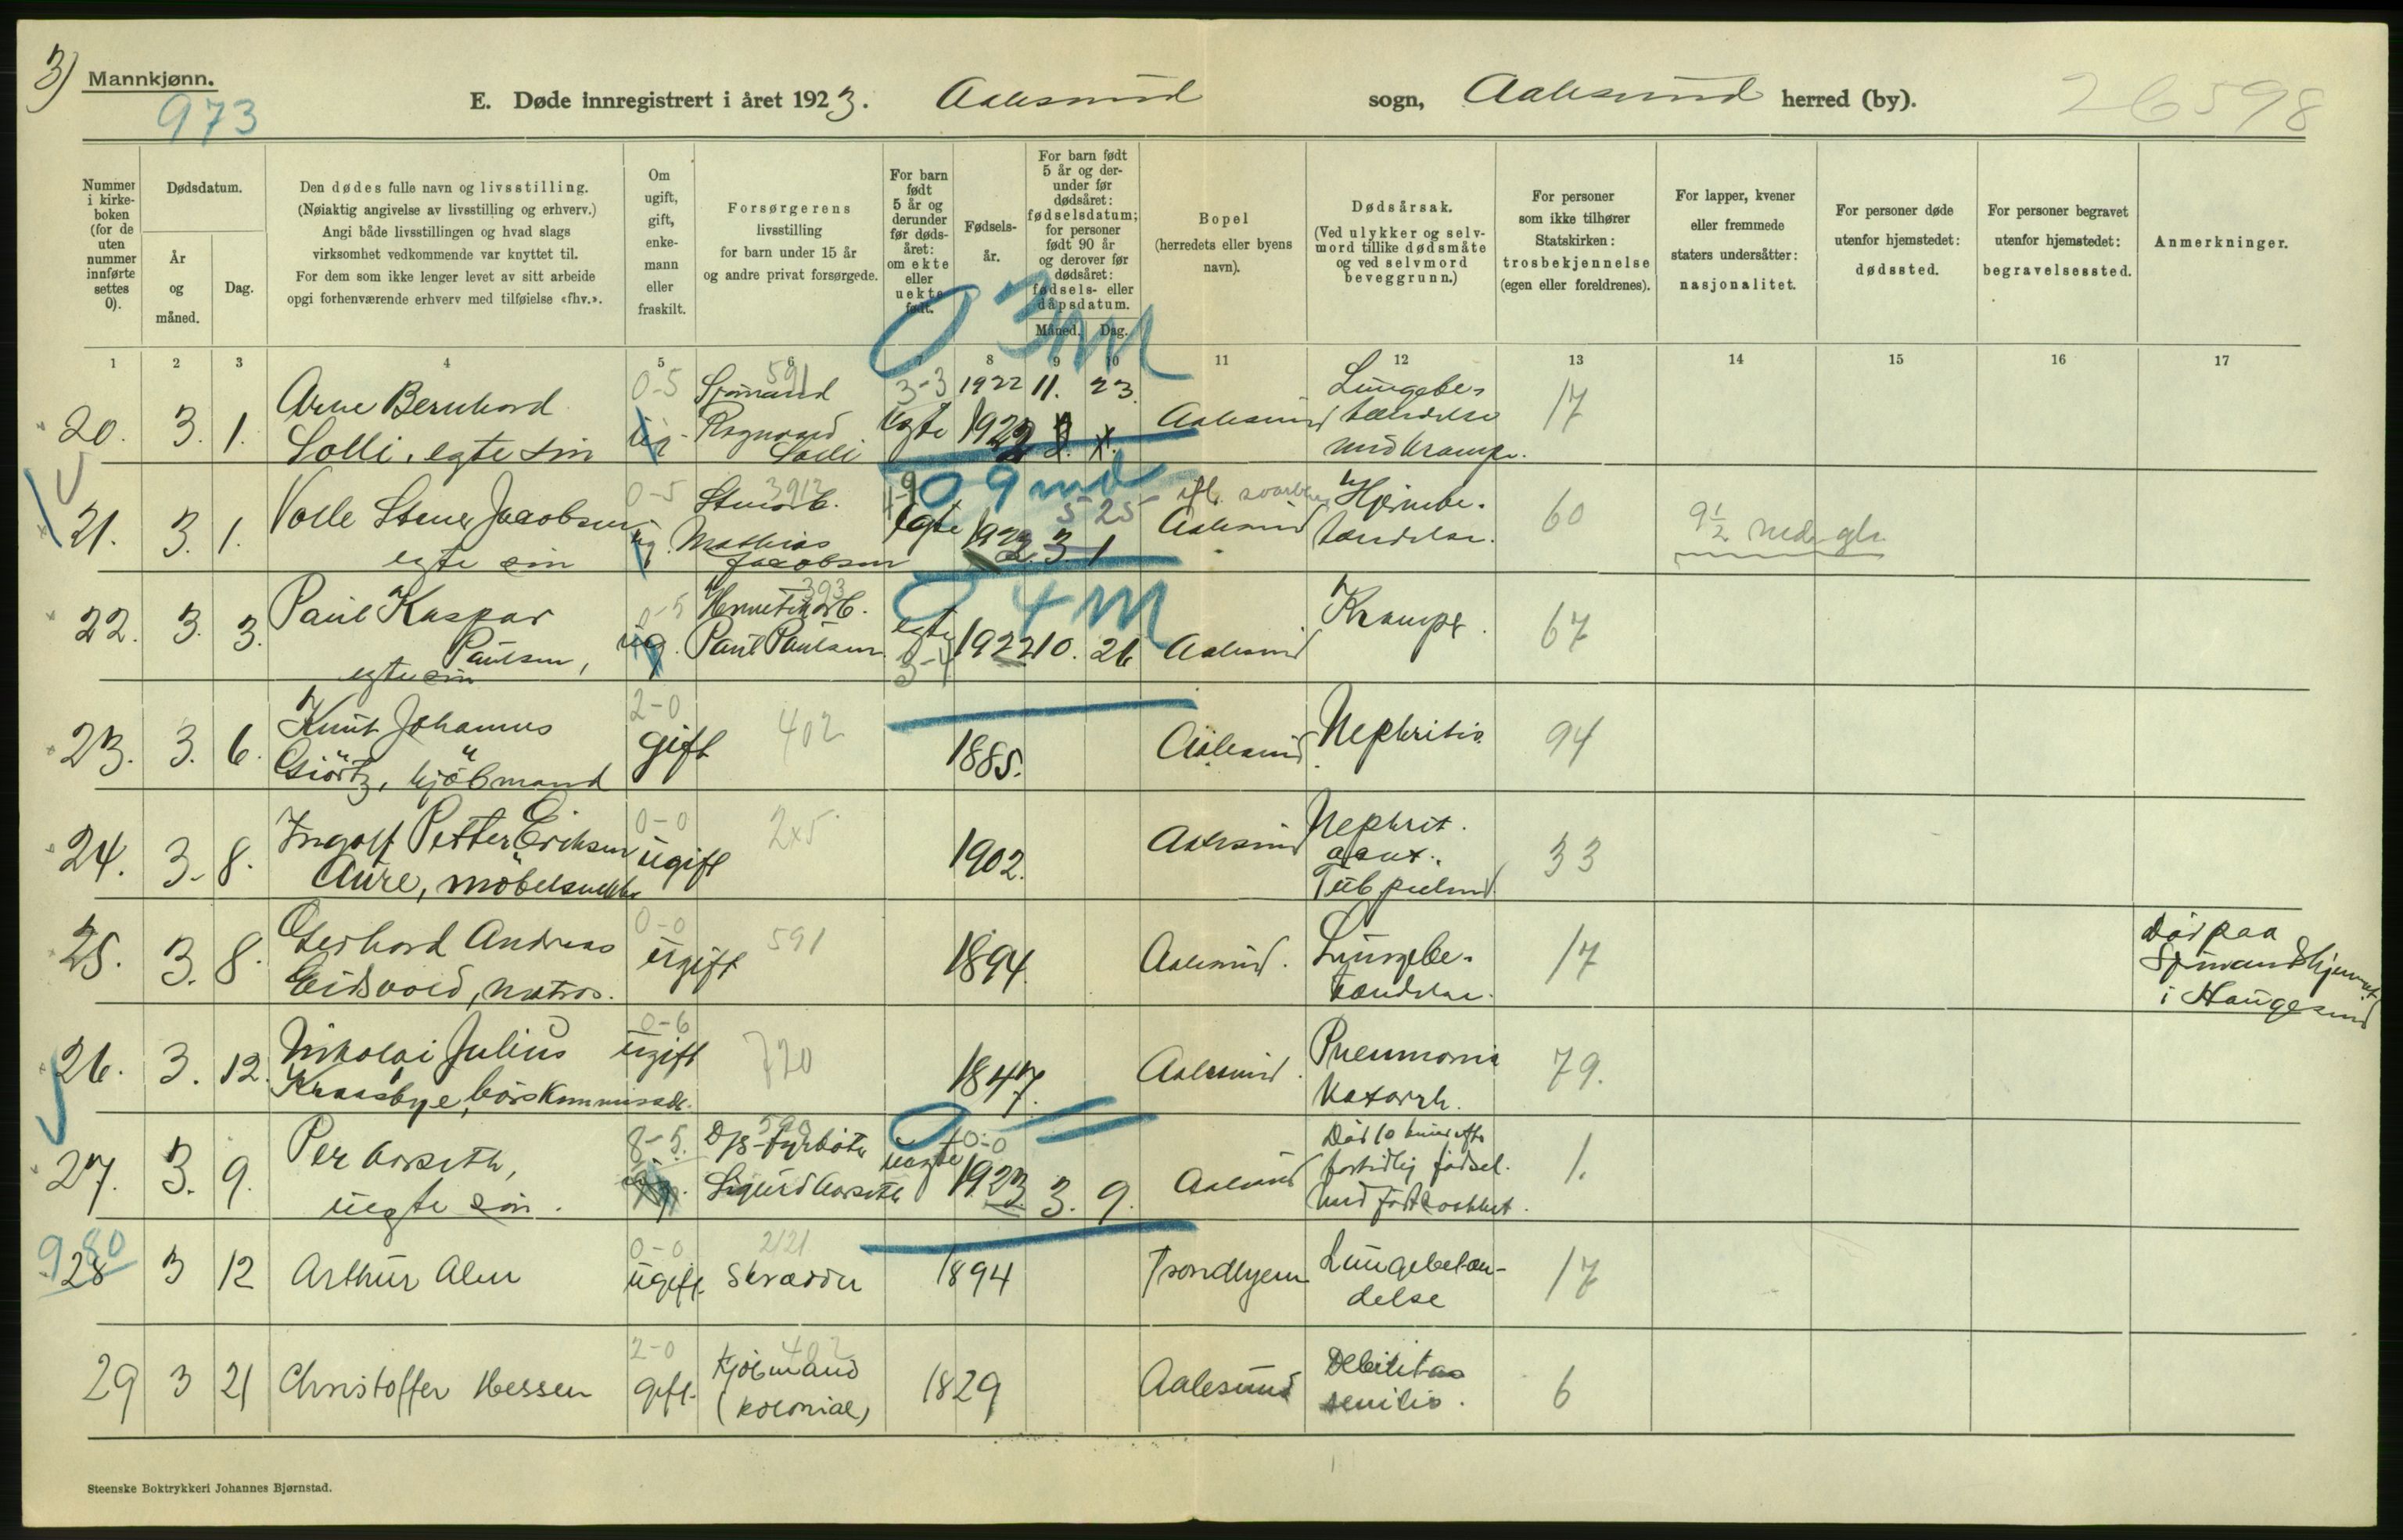 3)
Mannkjønn.
973
E. Døde innregistrert i året 1923. Aalesund sogn, Aalesund herred (by).
26598
Nummer i kirke- boken (for de uten nummer innførte settes 0).
Dødsdatum.
År og måned.
Dag.
Den dødes fulle navn og livsstilling.
(Nøiaktig angivelse av livsstilling og erhverv.)
Angi både livsstillingen og hvad slags
virksomhet vedkommende var knyttet til.
For dem som ikke lenger levet av sitt arbeide
opgi forhenværende erhverv med tilføielse «fhv.».
Om ugift, gift, enke- mann eller fraskilt.
Forsørgerens
livsstilling
for barn under 15 år
og andre privat forsørgede.
For barn født 5 år og derunder før døds- året: om ekte eller uekte født.
Fødsels- år.
For barn født 5 år og der- under før dødsåret: fødselsdatum; for personer født 90 år og derover før dødsåret: fødsels- eller dåpsdatum.
Måned. Dag.
Bopel
(herredets eller byens
navn).
Dødsårsak.
(Ved ulykker og selv-
mord tillike dødsmåte
og ved selvmord
beveggrunn.)
For personer
som ikke tilhører
Statskirken:
trosbekjennelse
(egen eller foreldrenes).
For lapper, kvener
eller fremmede
staters undersåtter:
nasjonalitet.
For personer døde
utenfor hjemstedet:
dødssted.
For personer begravet
utenfor hjemstedet:
begravelsessted.
Anmerkninger.
1 2 3 4 5 6 7 8 9 10 11 12 13 14 15 16 17
0 3 m
20. 3. 1. Arne Bernhard
Solli, egte sön
0-5 ug. 591 Sjømand
Ragnvald
Solli
3-3 egte 1922 11. 23.
1922
Aalesund
Lungebe-
tændelse
med krampe.
17
0 9 md
21. 3. 1. Valle Stener Jacobsen
egte sön
0-5 ug. 3912
Mathias
Jacobsen
egte 5 25
1922. 3. 1
Aalesund
Hjernebe.
tændelse.
60
9½ mdr gl.
0 4 m
22. 3. 3. Paul Kaspar
Paulsen,
egte sön
0-5 ug. 393 Hermetikarb.
Paul Paulsen
egte 3-4 1922 10. 26
Aalesund
Krampe.
67
23. 3. 6. Knut Johannes
Giörtz, kjöbmand
2-0 gift 402
1885.
Aalesund
Nephritis
94
24. 3. 8. Ingolf Petter Eriksen
Aure, möbelsnekker
0-0 ugift
1902.
Aalesund
Nephrit.
acut.
Tub. pulm.
33
25. 3. 8. Gerhard Andreas
Eidsvold, matros.
0-0 ugift 591
1894.
Aalesund.
Lungebe-
tændelse.
17
Död paa
Sjömandshjemmet
i Haugesund
26. 3. 12. Nikolai Julius
Kraasbye, börskommissær.
0-6 ugift 720
1847.
Aalesund.
Pneumoni
Katarrh.
79.
27. 3. 9. Per Aarseth,
uegte sön.
8-5. ug. D/S fyrböter
Sigurd Aarseth
uegte 0-0
1923. 3. 9.
Aalesund
Död 10 timer efter
fortidlig födsel.
1.
980
28 3 12 Arthur Alm
0-0 ugift. 2121 Skrædder
1894
Trondhjem
Lungebetæn-
delse
17
29 3 21 Christoffer Hessen
2-0 gift. 402 Kjöbmand
(kolonial)
1829
Aalesund
Debilitas
senilis.
6
Steenske Boktrykkeri Johannes Bjørnstad.